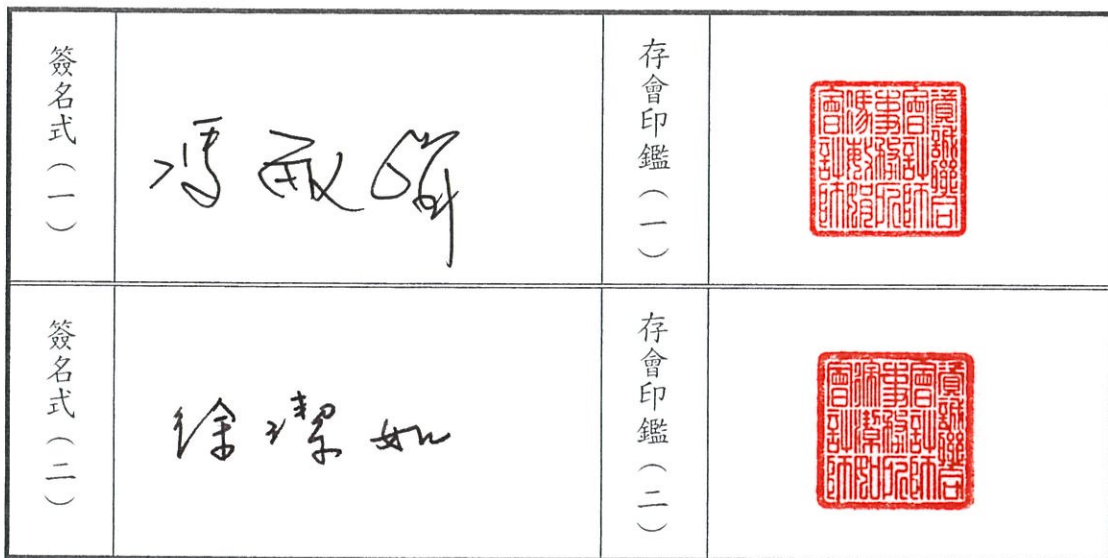 簽名式（一）
馮敏娟
存會印鑑（一）
資誠聯合
會計師
事務所
馮敏娟
會計師
簽名式（二）
徐潔如
存會印鑑（二）
資誠聯合
會計師
事務所
徐潔如
會計師